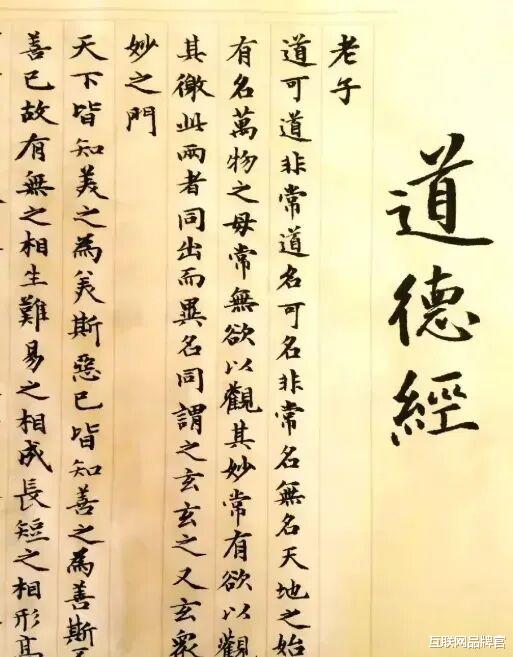 道德經
老子
道可道非常道名可名非常名無名天地之始
有名萬物之母常無欲以觀其妙常有欲以觀
其徼此兩者同出而異名同謂之玄玄之又玄眾
妙之門
天下皆知美之為美斯惡已皆知善之為善斯不
善已故有無之相生難易之相成長短之相形高
互联网品牌官